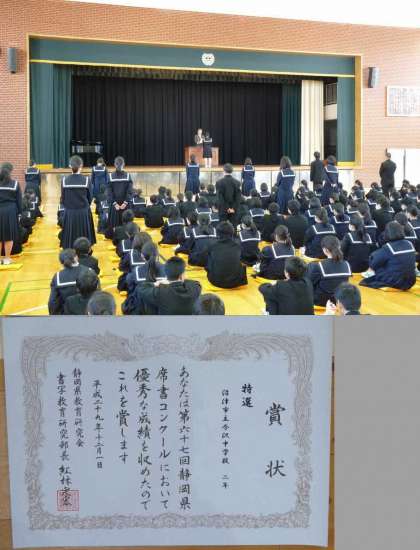 賞状
特選
沼津市立今沢中学校 二年
あなたは第六十七回静岡県
席書コンクールにおいて
優秀な成績を収めたので
これを賞します
平成二十九年十二月一日
静岡県教育研究会
書写教育研究部長 紅林